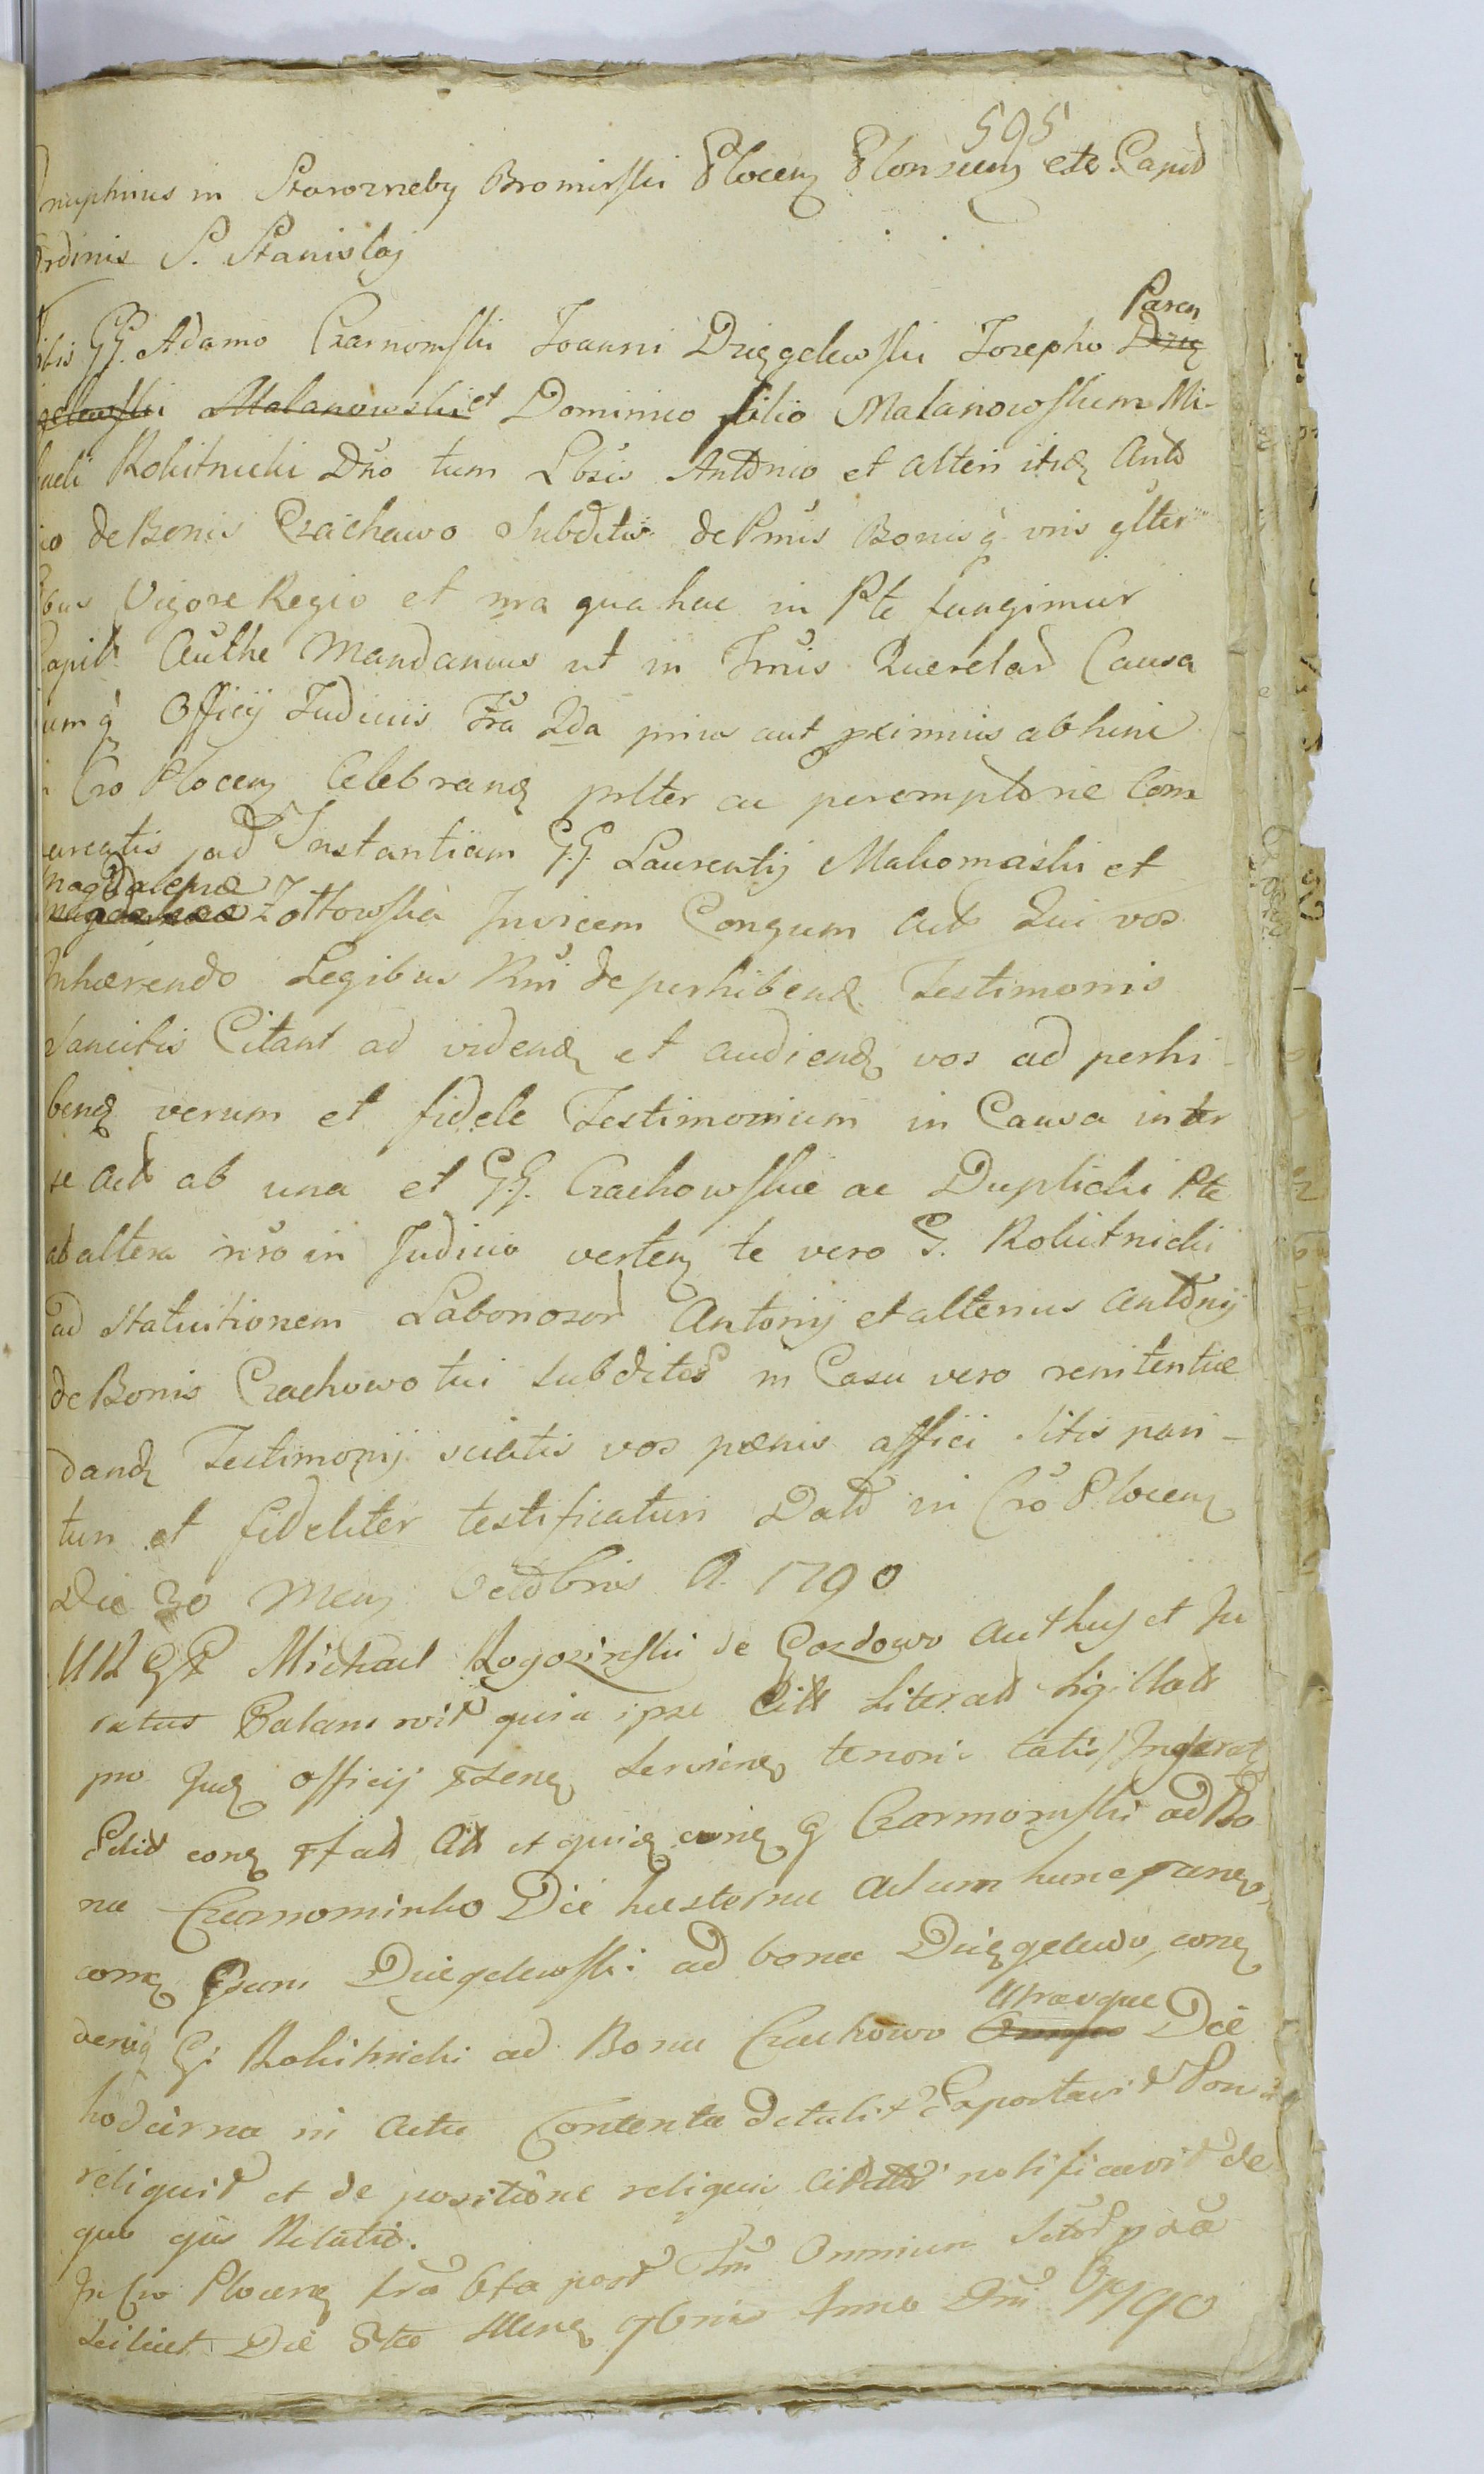 595
nuphrius in Starorzneby Bromirski Plocen Plonscen etc Capit
Ordinis S. Stanislaj
Vobis GG. Adamo Czarnomski Joanni Dzięgelewski Josepho Paren
et Dominico filio Malanowskim Mi-
haeli Rokitnicki Dño tum Lbsis Antonio et alteri itid Anto
io de Bonis Czachowo Subditis de Pmis Bonisq vris glter
bus Vigore Regio et nra qua hac in Pte fungimur
Capit Authe Mandamus ut in Tmis Querelar Causa
um q Officij Judiciis Fra 2da prius aut pximius abhinc
Cro Plocen Celebrand plter ac peremptorie Com
areatis ad Instantiam G.G. Laurentij Makomaski et
Magdalenæ Zołtowska Invicem Congum Act Qui vos
Inhærendo Legibus Rni de perhibend Testimoniis
Sancitis Citant ad videnđ et audienđ vos ad perhi-
benđ verum et fidele Testimonium in Causa inter
se Act ab una et G.G. Czachowskie ac Duplicki Pte
ab altera nro in Judicio verten te vero G. Rokitnicki
ad Statuitionem Laboriosor Antonij et alterius Antonij
de Bonis Czachowo tui subditos in Casu vero renitentiæ
danđ Testimonij sciatis vos pænis affici Sitis pari-
turi et fideliter testificaturi Dat in Cro Plocen
Die 30 Men Octobris A. 1790
Michael Rogozinski de Gozdowo Authus et Ju
ratus Palam rec quia ipse Citt Literat Sigillat
pro Jud Officij servien tenoris talis
Edit con et quid con G Czarnomski ad Bo
na Czarnominko Die hesterna Actum hunc
con Gsum Dzięgelewski ad bona Dzięgelewo, con
deniq G. Rokitnicki ad Bona Czachowo Utrasque Die
hodierna in Actu Contenta detulit Exportavit Posu
reliquit et de positione reliquis notificavit de
quo ejus Relatio.
In Cro Plocen fra 6ta post Fm Omnium
scilicet Die 5ta Mens 9bris Anno Dni 1790